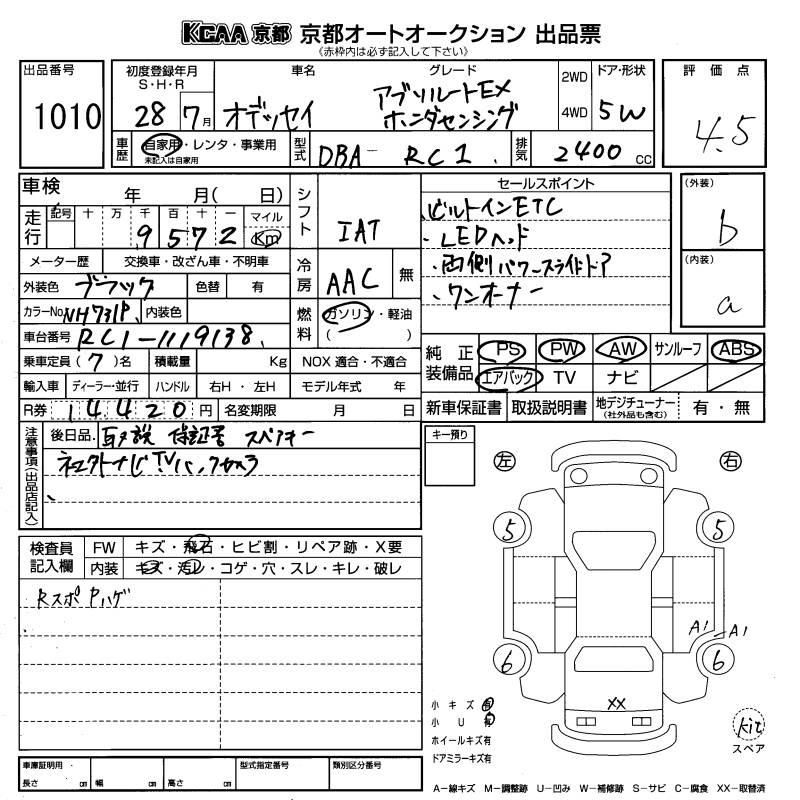 KCAA 京都 京都オートオークション 出品票
（赤枠内は必ず記入して下さい）
出品番号 1010
初度登録年月 S・H・R 28 7月
車名 オデッセイ
グレード アブソルートEX ホンダセンシング
2WD 4WD
ドア・形状 5W
評価点 4.5
車歴 自家用・レンタ・事業用
未記入は自家用
型式 DBA- RC1
排気 2400 CC
車検 年 月( 日)
走行 記号 十 万 千 百 十 一 マイル Km
9572
メーター歴 交換車・改ざん車・不明車
外装色 ブラック 色替 有
カラーNo. NH731P 内装色
車台番号 RC1-1119138
乗車定員(7)名 積載量 Kg
輸入車 ディーラー・並行 ハンドル 右H・左H
R券 14420円 名変期限 月 日
シフト IAT
冷房 AAC 無
燃料 ガソリン・軽油
( )
NOX 適合・不適合
モデル年式 年
セールスポイント
・ビルトインETC
・LEDヘッド
・両側パワースライドドア
・ワンオーナー
(外装) b
(内装) a
純正装備品 PS PW AW サンルーフ ABS
エアバック TV ナビ
新車保証書 取扱説明書 地デジチューナー (社外品も含む) 有・無
注意事項(出品店記入)
後日品. 取説 保証書 スペアキー
ネェクトナビTVバックカメラ
キー預り
左 右
5 5
6 6
A1 A1
XX
検査員記入欄 FW キズ・飛石・ヒビ割・リペア跡・X要
内装 キズ・汚レ・コゲ・穴・スレ・キレ・破レ
Rスポ Pハゲ
小キズ 有
小U 有
ホイールキズ有
ドアミラーキズ有
kit
スペア
車庫証明用・ 長さ cm 幅 cm 高さ cm
型式指定番号 類別区分番号
A－線キズ M－調整跡 U－凹み W－補修跡 S－サビ C－腐食 XX－取替済